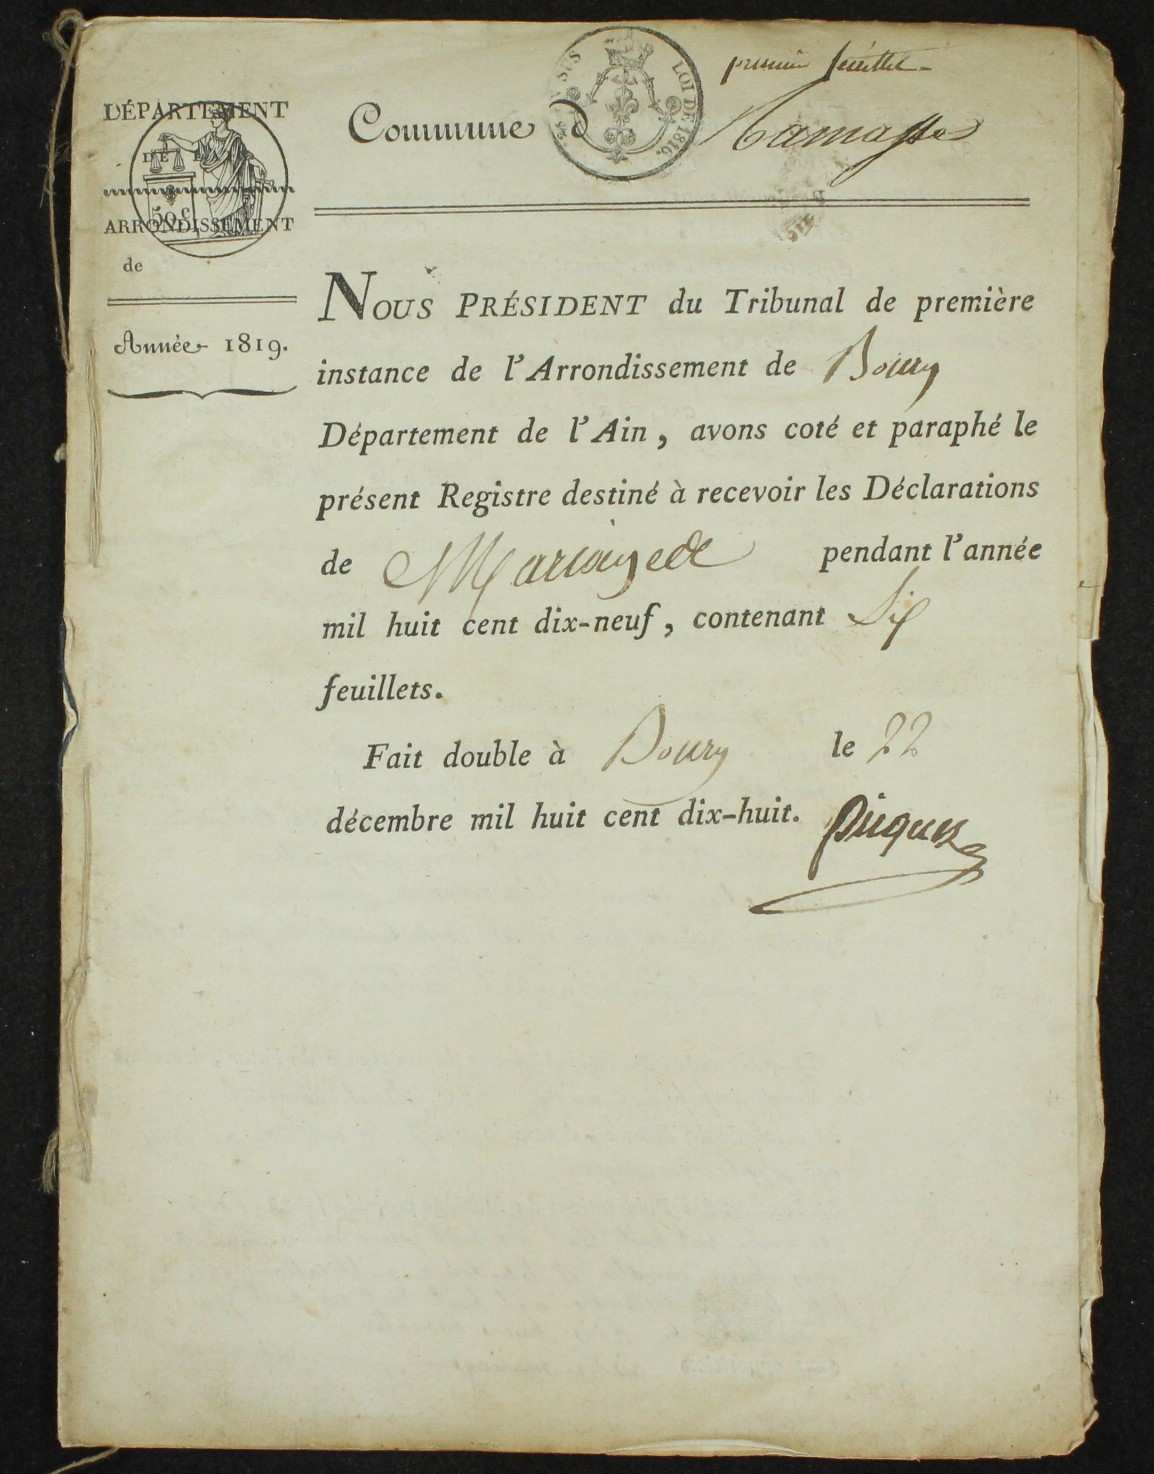 premier feuillet
DÉPARTEMENT
DE L'AIN
50 c.
ARRONDISSEMENT
de
Année 1819.
Commune d
EN SUS LOI DE 1816.
Ramasse
NOUS PRÉSIDENT du Tribunal de première
instance de l'Arrondissement de Bourg
Département de l'Ain, avons coté et paraphé le
présent Registre destiné à recevoir les Déclarations
de Mariage pendant l'année
mil huit cent dix-neuf, contenant Six
feuillets.
Fait double à Bourg le 22
décembre mil huit cent dix-huit. Picquet